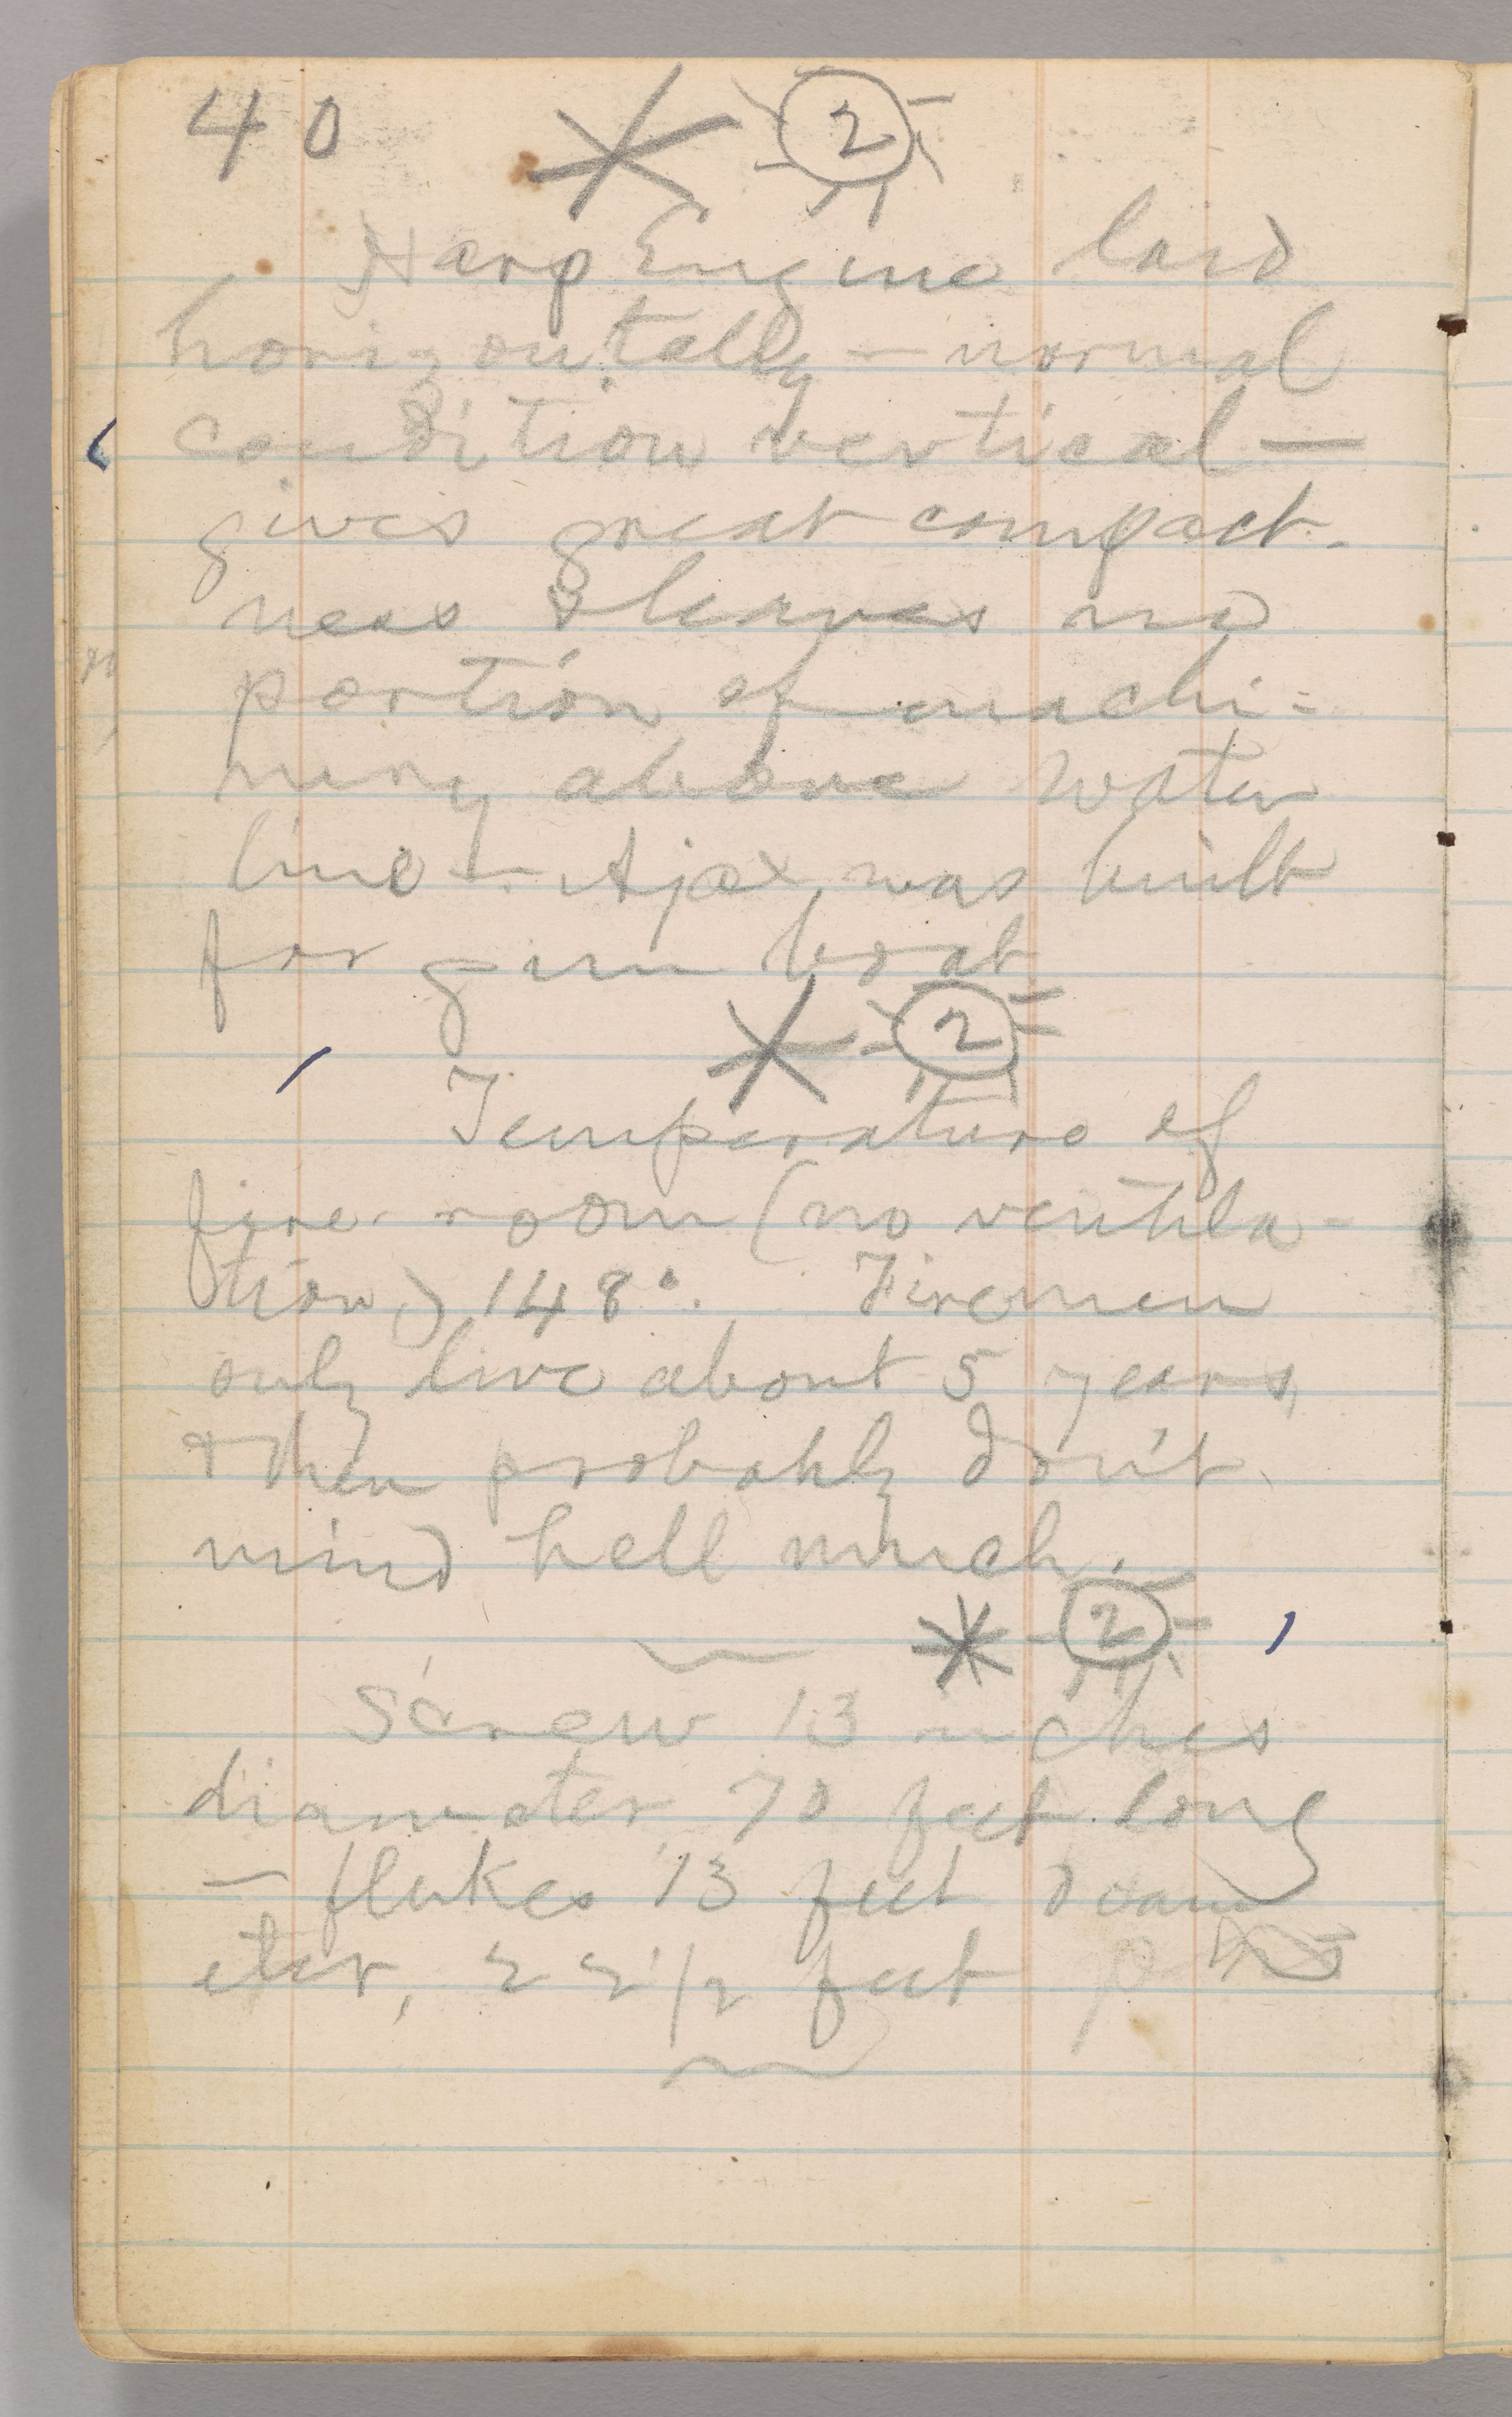 40 * 2
Harp Engine laid
horizontally — normal
condition vertical —
gives great compact-
ness & leaves no
portion of machi=
nery above water
line — Ajax was built
for gun boat
* 2
Temperature of
fire-room (no ventila-
tion,) 148°. Firemen
only live about 5 years,
& then probably don't
mind hell much.
* 2
Screw 13 inches
diameter, 70 feet long
— flukes 13 feet diam
eter, 22 1/2 feet